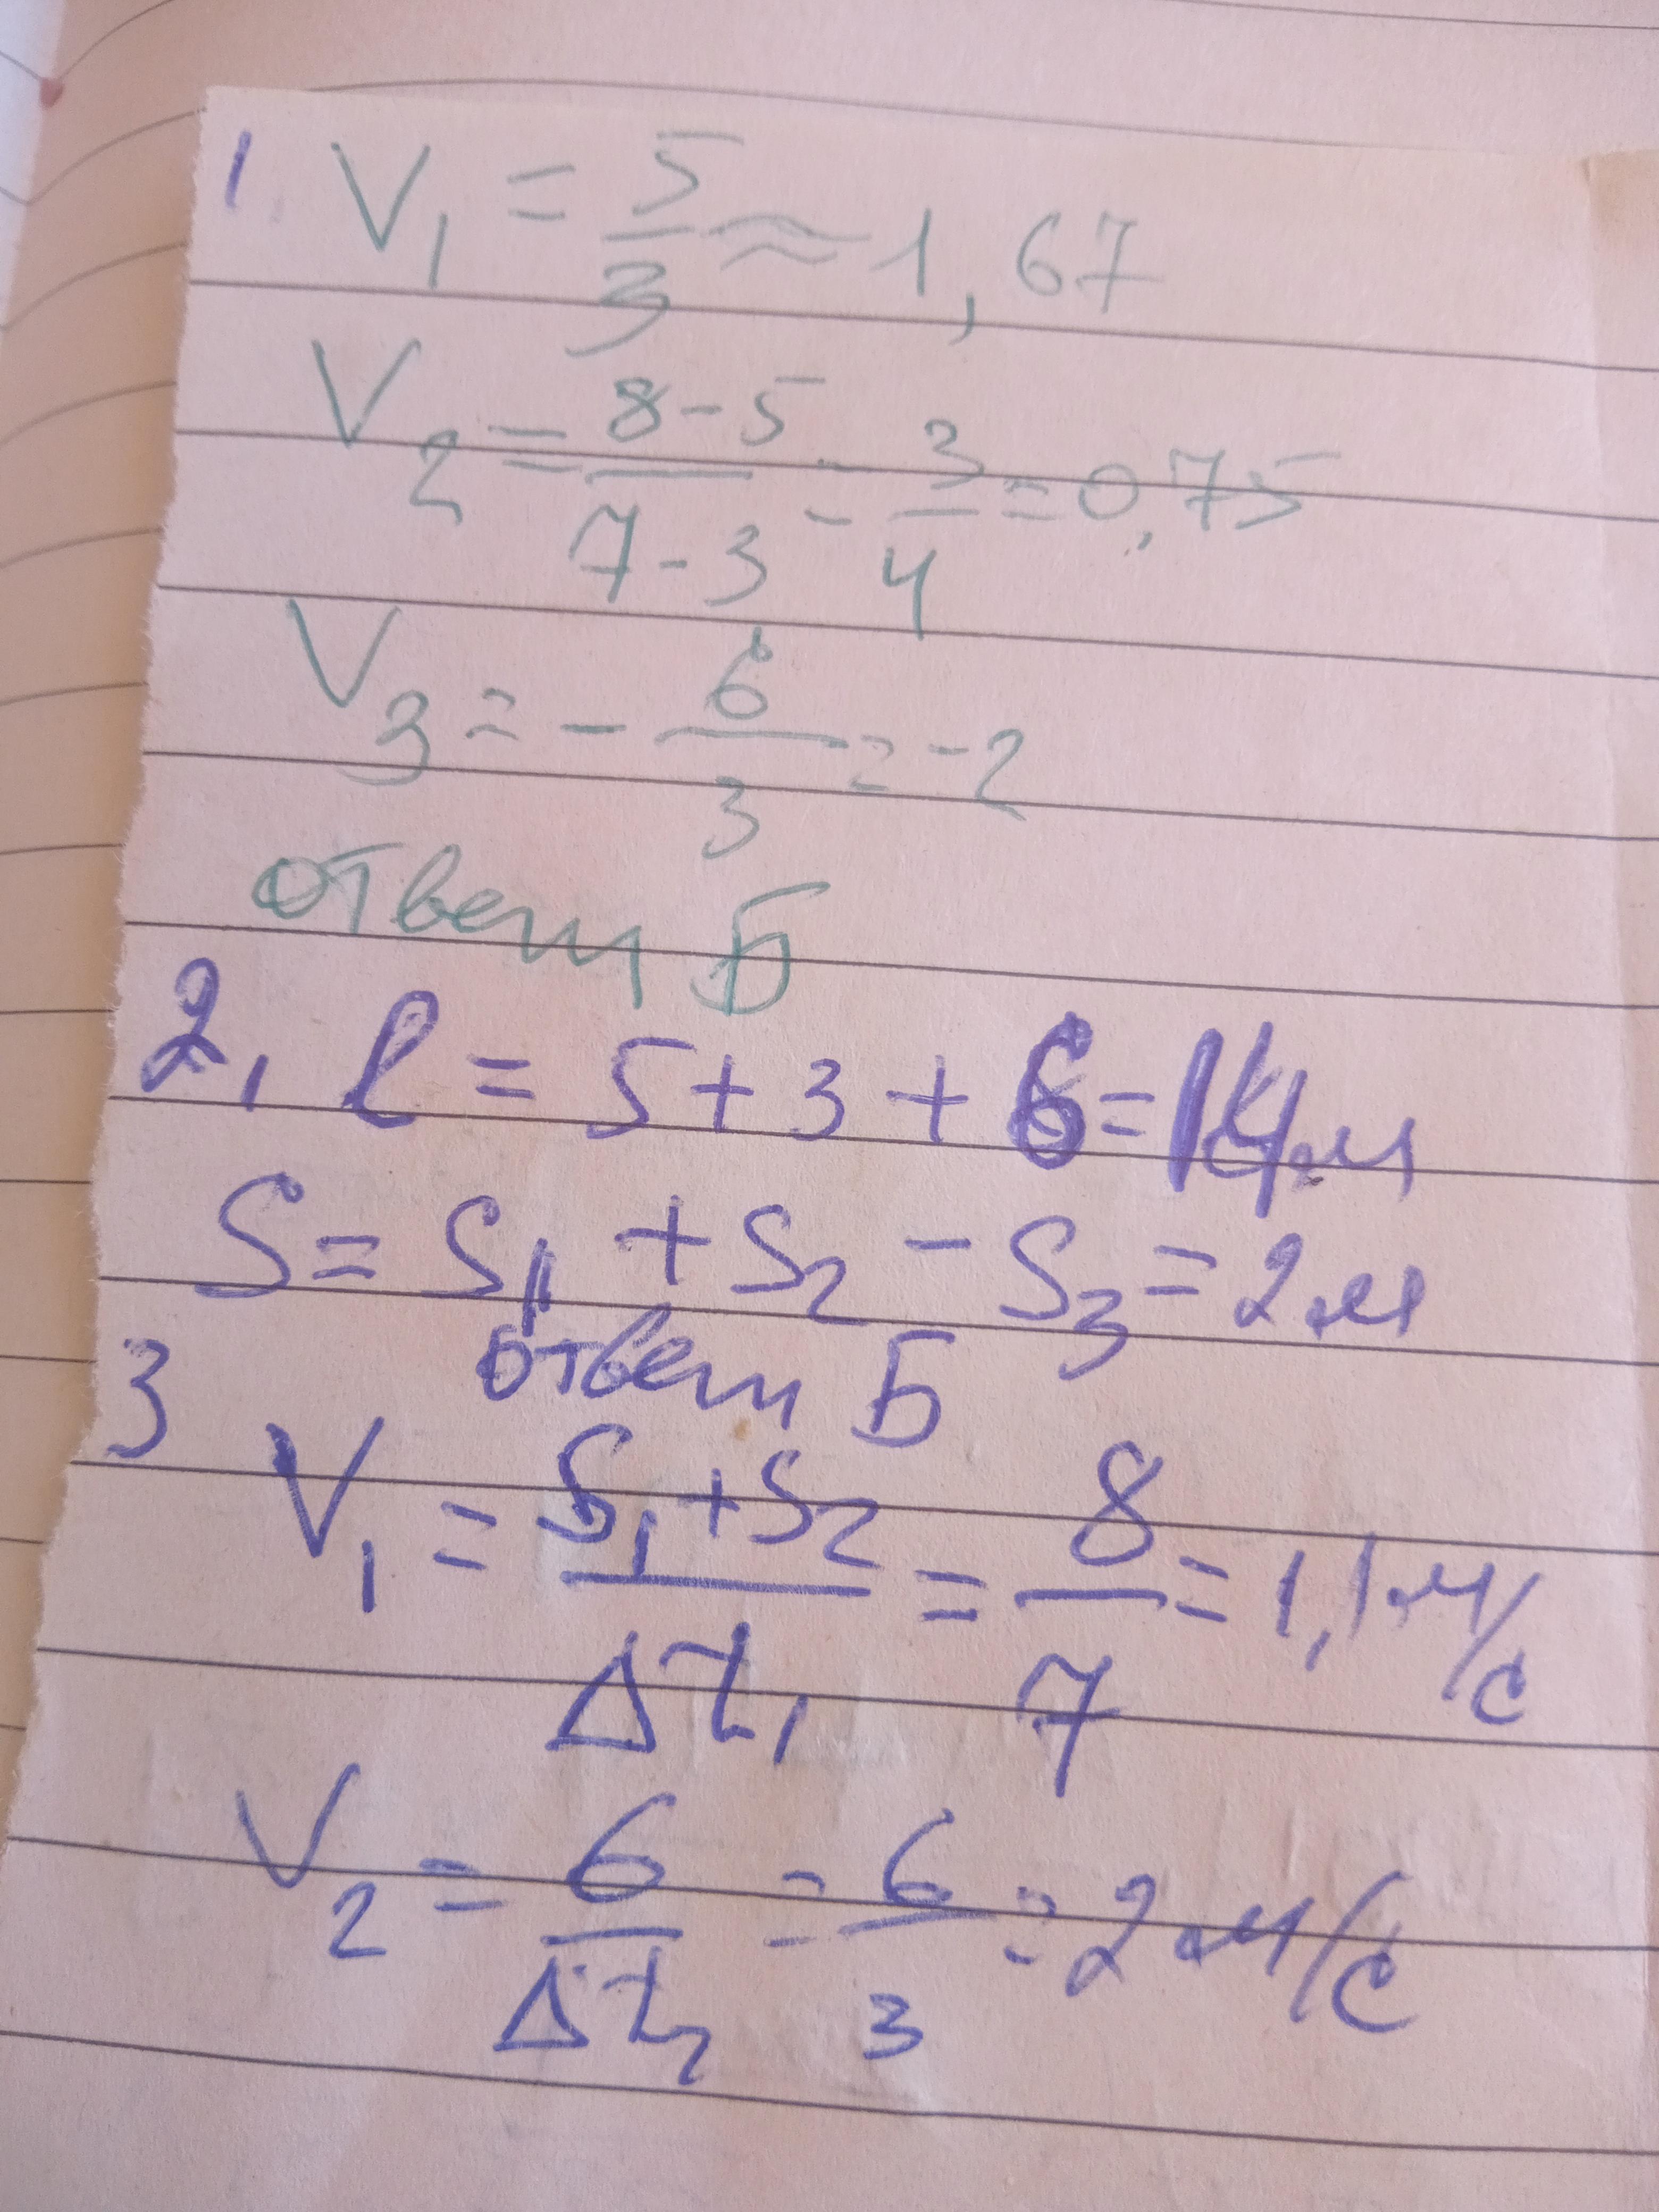 1 V₁ = 5/3 ≈ 1,67
V₂ = (8-5)/(7-3) = 3/4 = 0,75
V₃ = - 6/3 = -2
ответ Б
2, l = 5 + 3 + 6 = 14 м
S = S₁ + S₂ - S₃ = 2 м
ответ Б
3 V₁ = (S₁ + S₂)/Δt₁ = 8/7 = 1,1 м/с
V₂ = 6/Δt₂ = 6/3 = 2 м/с